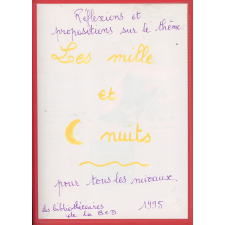 Réflexions et
propositions sur le thème
Les mille
et
nuits
pour tous les niveaux.
les bibliothécaires 1995
de la BCD